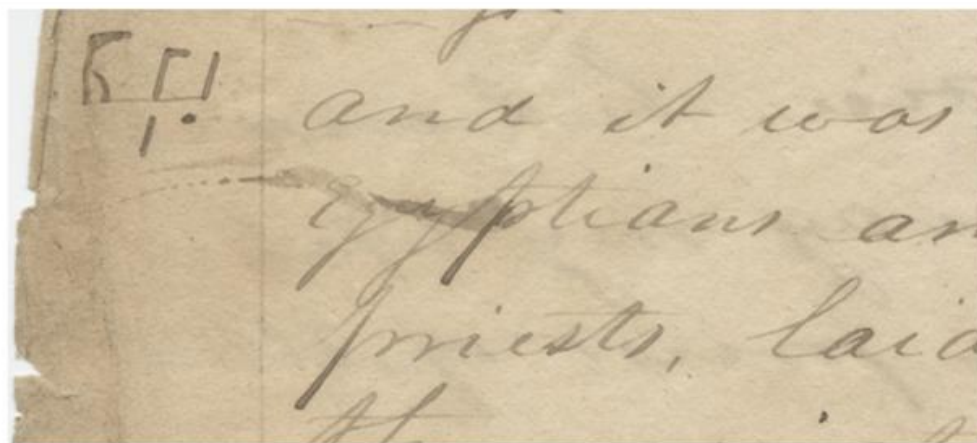 and it was
egyptians an
priests, laid